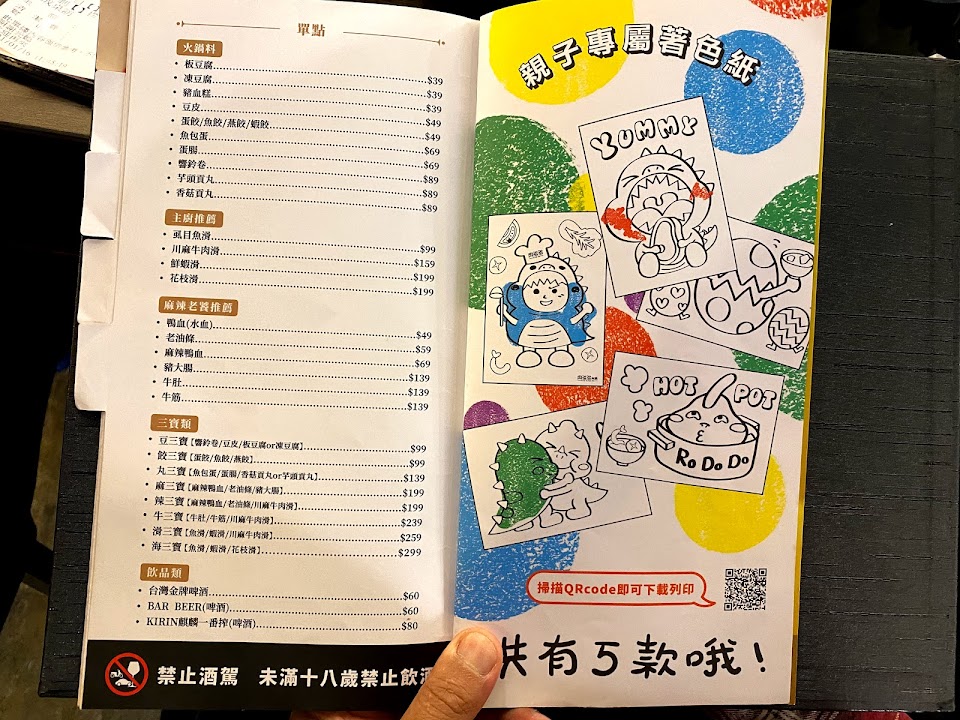 單點
火鍋料
• 板豆腐 $39
• 凍豆腐 $39
• 豬血糕 $39
• 豆皮 $49
• 蛋餃/魚餃/燕餃/蝦餃 $49
• 魚包蛋 $69
• 蛋腸 $69
• 響鈴卷 $89
• 芋頭貢丸 $89
• 香菇貢丸 $89
主廚推薦
• 虱目魚滑 $99
• 川麻牛肉滑 $159
• 鮮蝦滑 $199
• 花枝滑 $199
麻辣老饕推薦
• 鴨血(水血) $49
• 老油條 $59
• 麻辣鴨血 $69
• 豬大腸 $139
• 牛肚 $139
• 牛筋 $139
三寶類
• 豆三寶【響鈴卷/豆皮/板豆腐or凍豆腐】 $99
• 餃三寶【蛋餃/魚餃/燕餃】 $99
• 丸三寶【魚包蛋/蛋腸/香菇貢丸or芋頭貢丸】 $139
• 麻三寶【麻辣鴨血/老油條/豬大腸】 $199
• 辣三寶【麻辣鴨血/老油條/川麻牛肉滑】 $199
• 牛三寶【牛肚/牛筋/川麻牛肉滑】 $239
• 滑三寶【魚滑/蝦滑/川麻牛肉滑】 $259
• 海三寶【魚滑/蝦滑/花枝滑】 $299
飲品類
• 台灣金牌啤酒 $60
• BAR BEER(啤酒) $60
• KIRIN麒麟一番搾(啤酒) $80
禁止酒駕 未滿十八歲禁止飲酒
親子專屬著色紙
YUMMY
HOT POT
RO DO DO
掃描QRcode即可下載列印
共有5款哦!